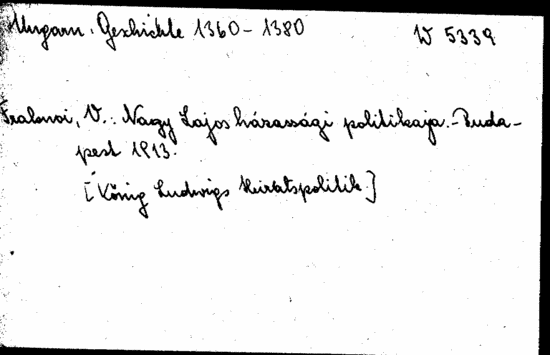 Ungarn. Geschichte 1360-1380 W 5339
Fraknoi, V.: Nagy Lajos házassági politikaja.-Buda-
pest 1913.
[König Ludwigs Heiratspolitik.]